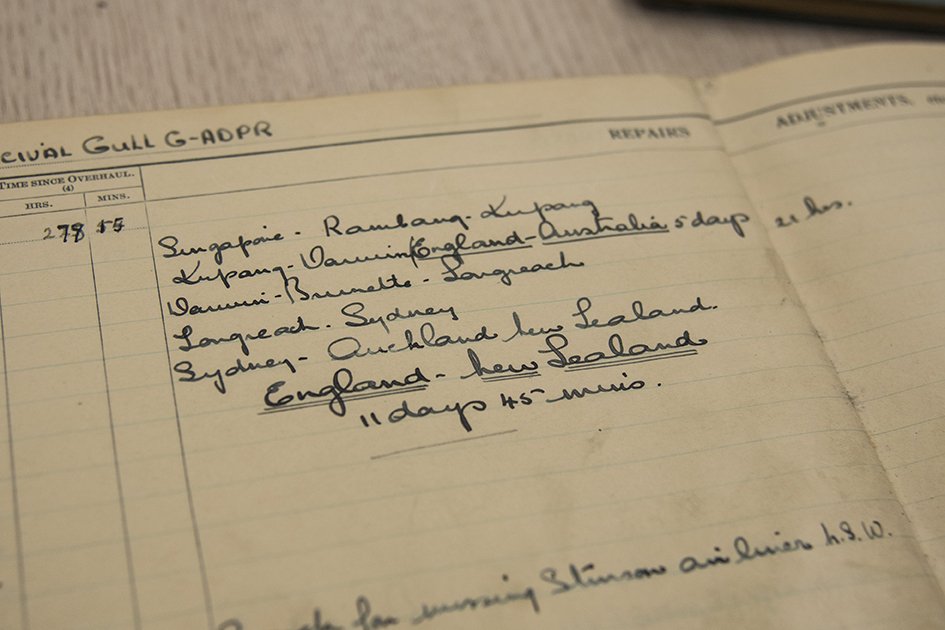 CIVAL GULL G-ADPR
REPAIRS
ADJUSTMENTS,
TIME SINCE OVERHAUL.
(4)
HRS. MINS.
278 15
Singapore - Rambang - Kupang
Kupang - Darwin / England - Australia 5 days 21 hrs.
Darwin - Brunette - Longreach
Longreach - Sydney
Sydney - Auckland New Zealand.
England - New Zealand
11 days 45 mins.
for missing Stinson air liner N.S.W.